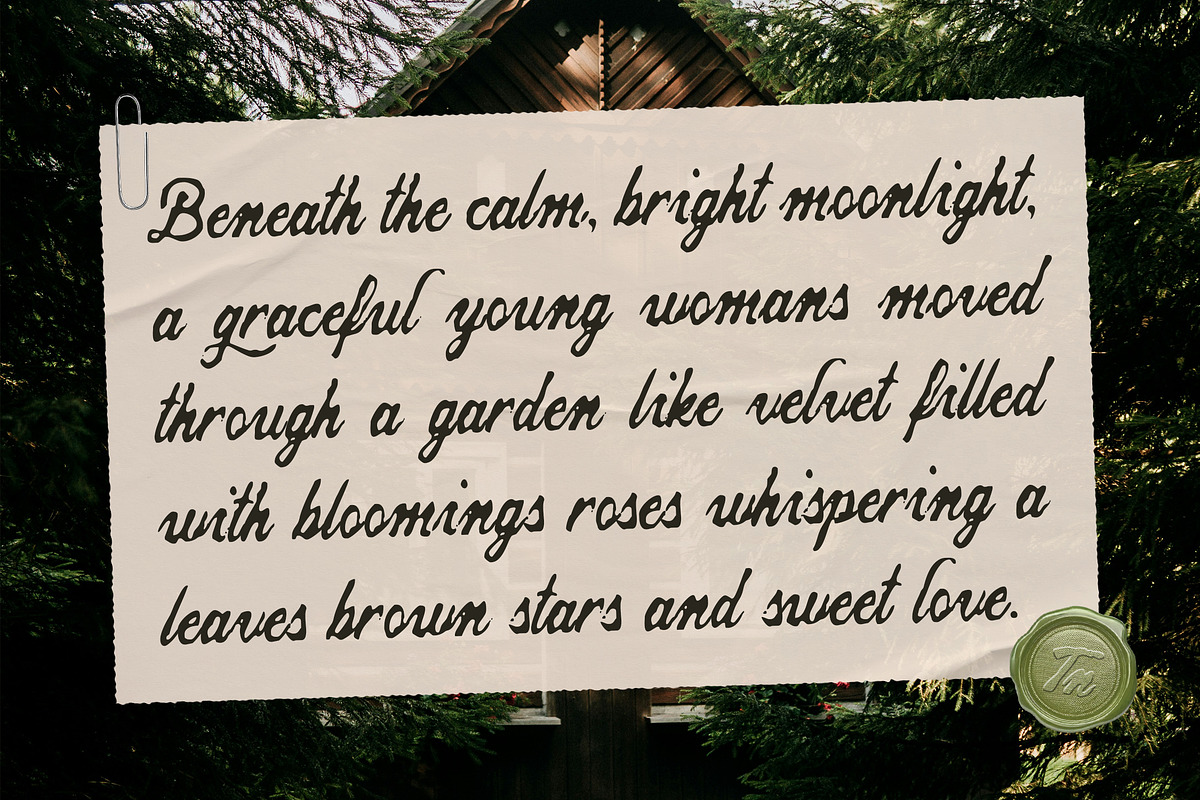 Beneath the calm, bright moonlight,
a graceful young womans moved
through a garden like velvet filled
with bloomings roses whispering a
leaves brown stars and sweet love.
Tn